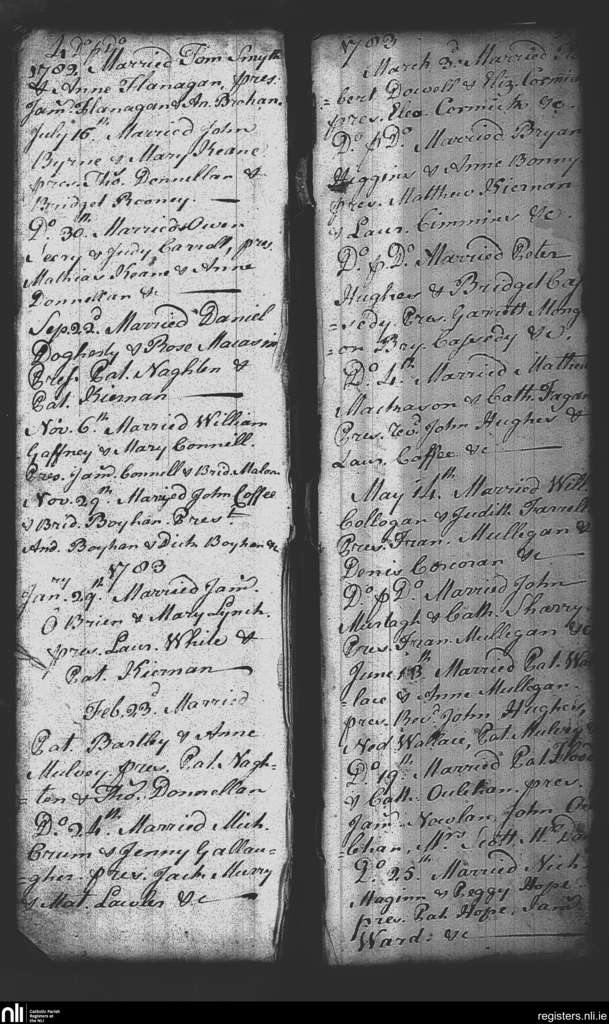 4 Do pr Do
1782 Married Tom Smyth
& Anne Flanagan, pres.
Jams. Flanagan & An. Brohan.
July 16th. Married John
Byrne & Mary Keane
pres. Thos. Donnellan &
Bridget Rooney.
Do. 30th. Married Owen
Seery & Judy Carroll, pres.
Mathias Keane & Anne
Donnellan &c
Sep. 22d. Married Daniel
Dogherty & Rose
Pres. Pat. Naghten &
Pat. Kiernan
Nov. 6th. Married William
Gaffney & Mary Connell.
Pres. Jams. Connell & Brid. Malon
Nov. 29th. Married John Coffee
& Brid. Boyhan. Pres.
And. Boyhan & Dick Boyhan &c
1783
Janry. 29th. Married Jams.
O Brien & Mary Lynch.
pres. Laur. While &
Pat. Kiernan
Feb. 23d. Married
Pat. Bartley & Anne
Mulvey, pres. Pat. Nagh-
=ten & Thos. Donnellan
Do. 24th. Married Mich.
Crum & Jenny Gallau-
=gher. pres. Jack Murry
& Mat. Lawler &c
1783
March 3d. Married
=bert Dowell & Eliz. Cormick
pres. Elea. Cormick &c.
Do. pr Do. Married Bryan
Higgins & Anne Bonny
pres. Matthew Kiernan
& Laur. Cimmins &c.
Do. pr Do. Married Peter
Hughes & Bridget Cas
=sedy Pres. Garrett Mong
=on Bry. Cassedy &c.
Do. 4th. Married Mathew
& Cath. Fagan
Pres. revd. John Hughes &
Laur. Coffee &c
May 14th. Married Will
Collogan & Judith Farrell
Pres. Fran. Mulligan &
Denis Corcoran &c
Do. pr Do. Married John
Murtagh & Cath. Sharry
Pres. Fran. Mullegan &c
June 13th. Married Pat. Wal
=lace & Anne Mullegan.
pres. Revd. John Hughes,
Ned Wallace, Pat. Mulvey &
Do. 19th. Married Pat. Flood
& Cath. Oulehan. pres.
Jams. Nowlan, John Ou
=lehan, Mrs. Scott, Mr. Dan
Do. 25th. Married Nich.
Maginn & Peggy Hope
pres. Pat. Hope, Jams.
Ward: &c
nli
Catholic Parish
Registers at
the NLI
registers.nli.ie